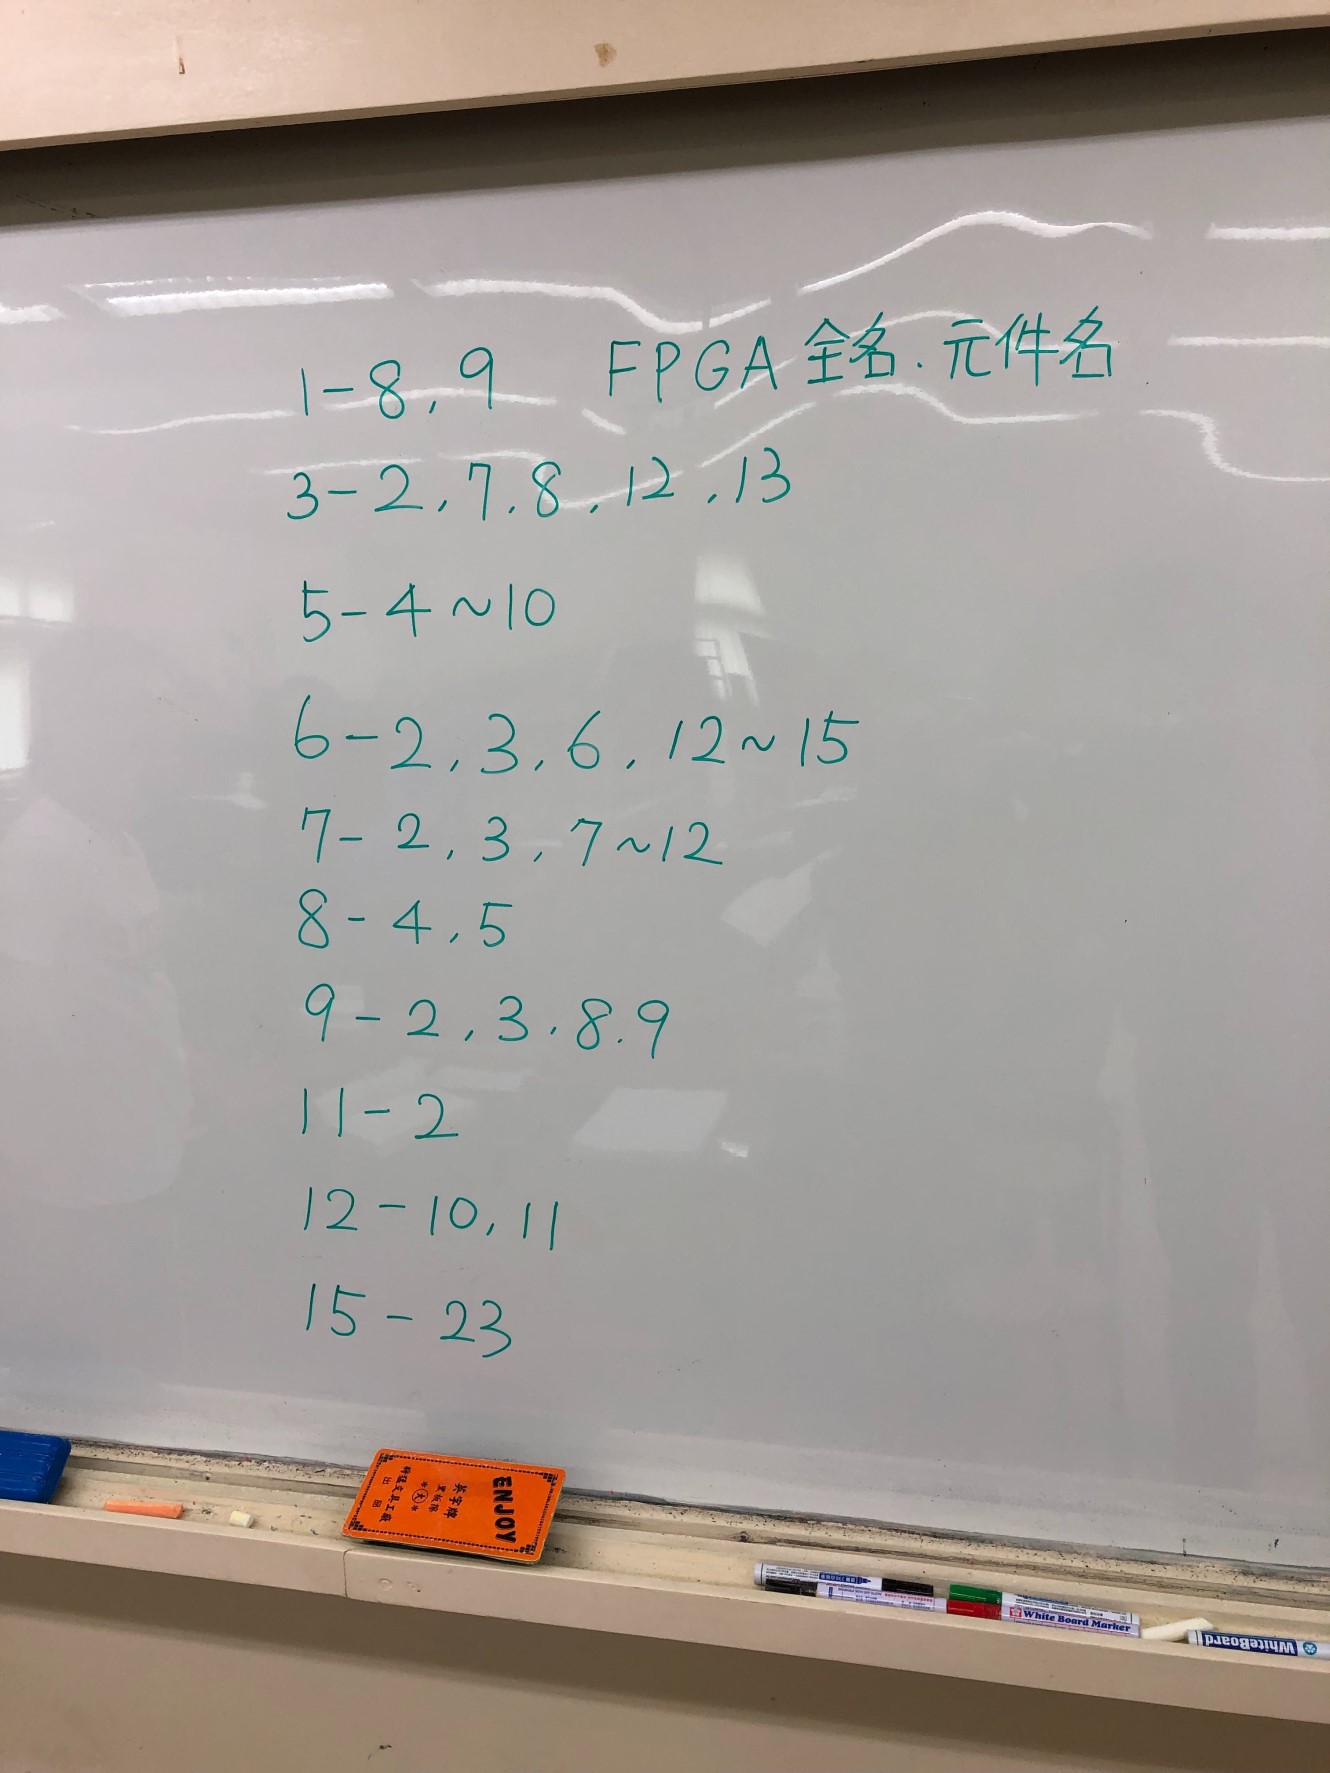 1-8, 9 FPGA 全名. 元件名
3-2, 7. 8, 12, 13
5-4~10
6-2, 3, 6, 12~15
7-2, 3, 7~12
8-4, 5
9-2, 3, 8. 9
11-2
12-10, 11
15-23
ENJOY
英字牌
White Board Marker
WhiteBoard